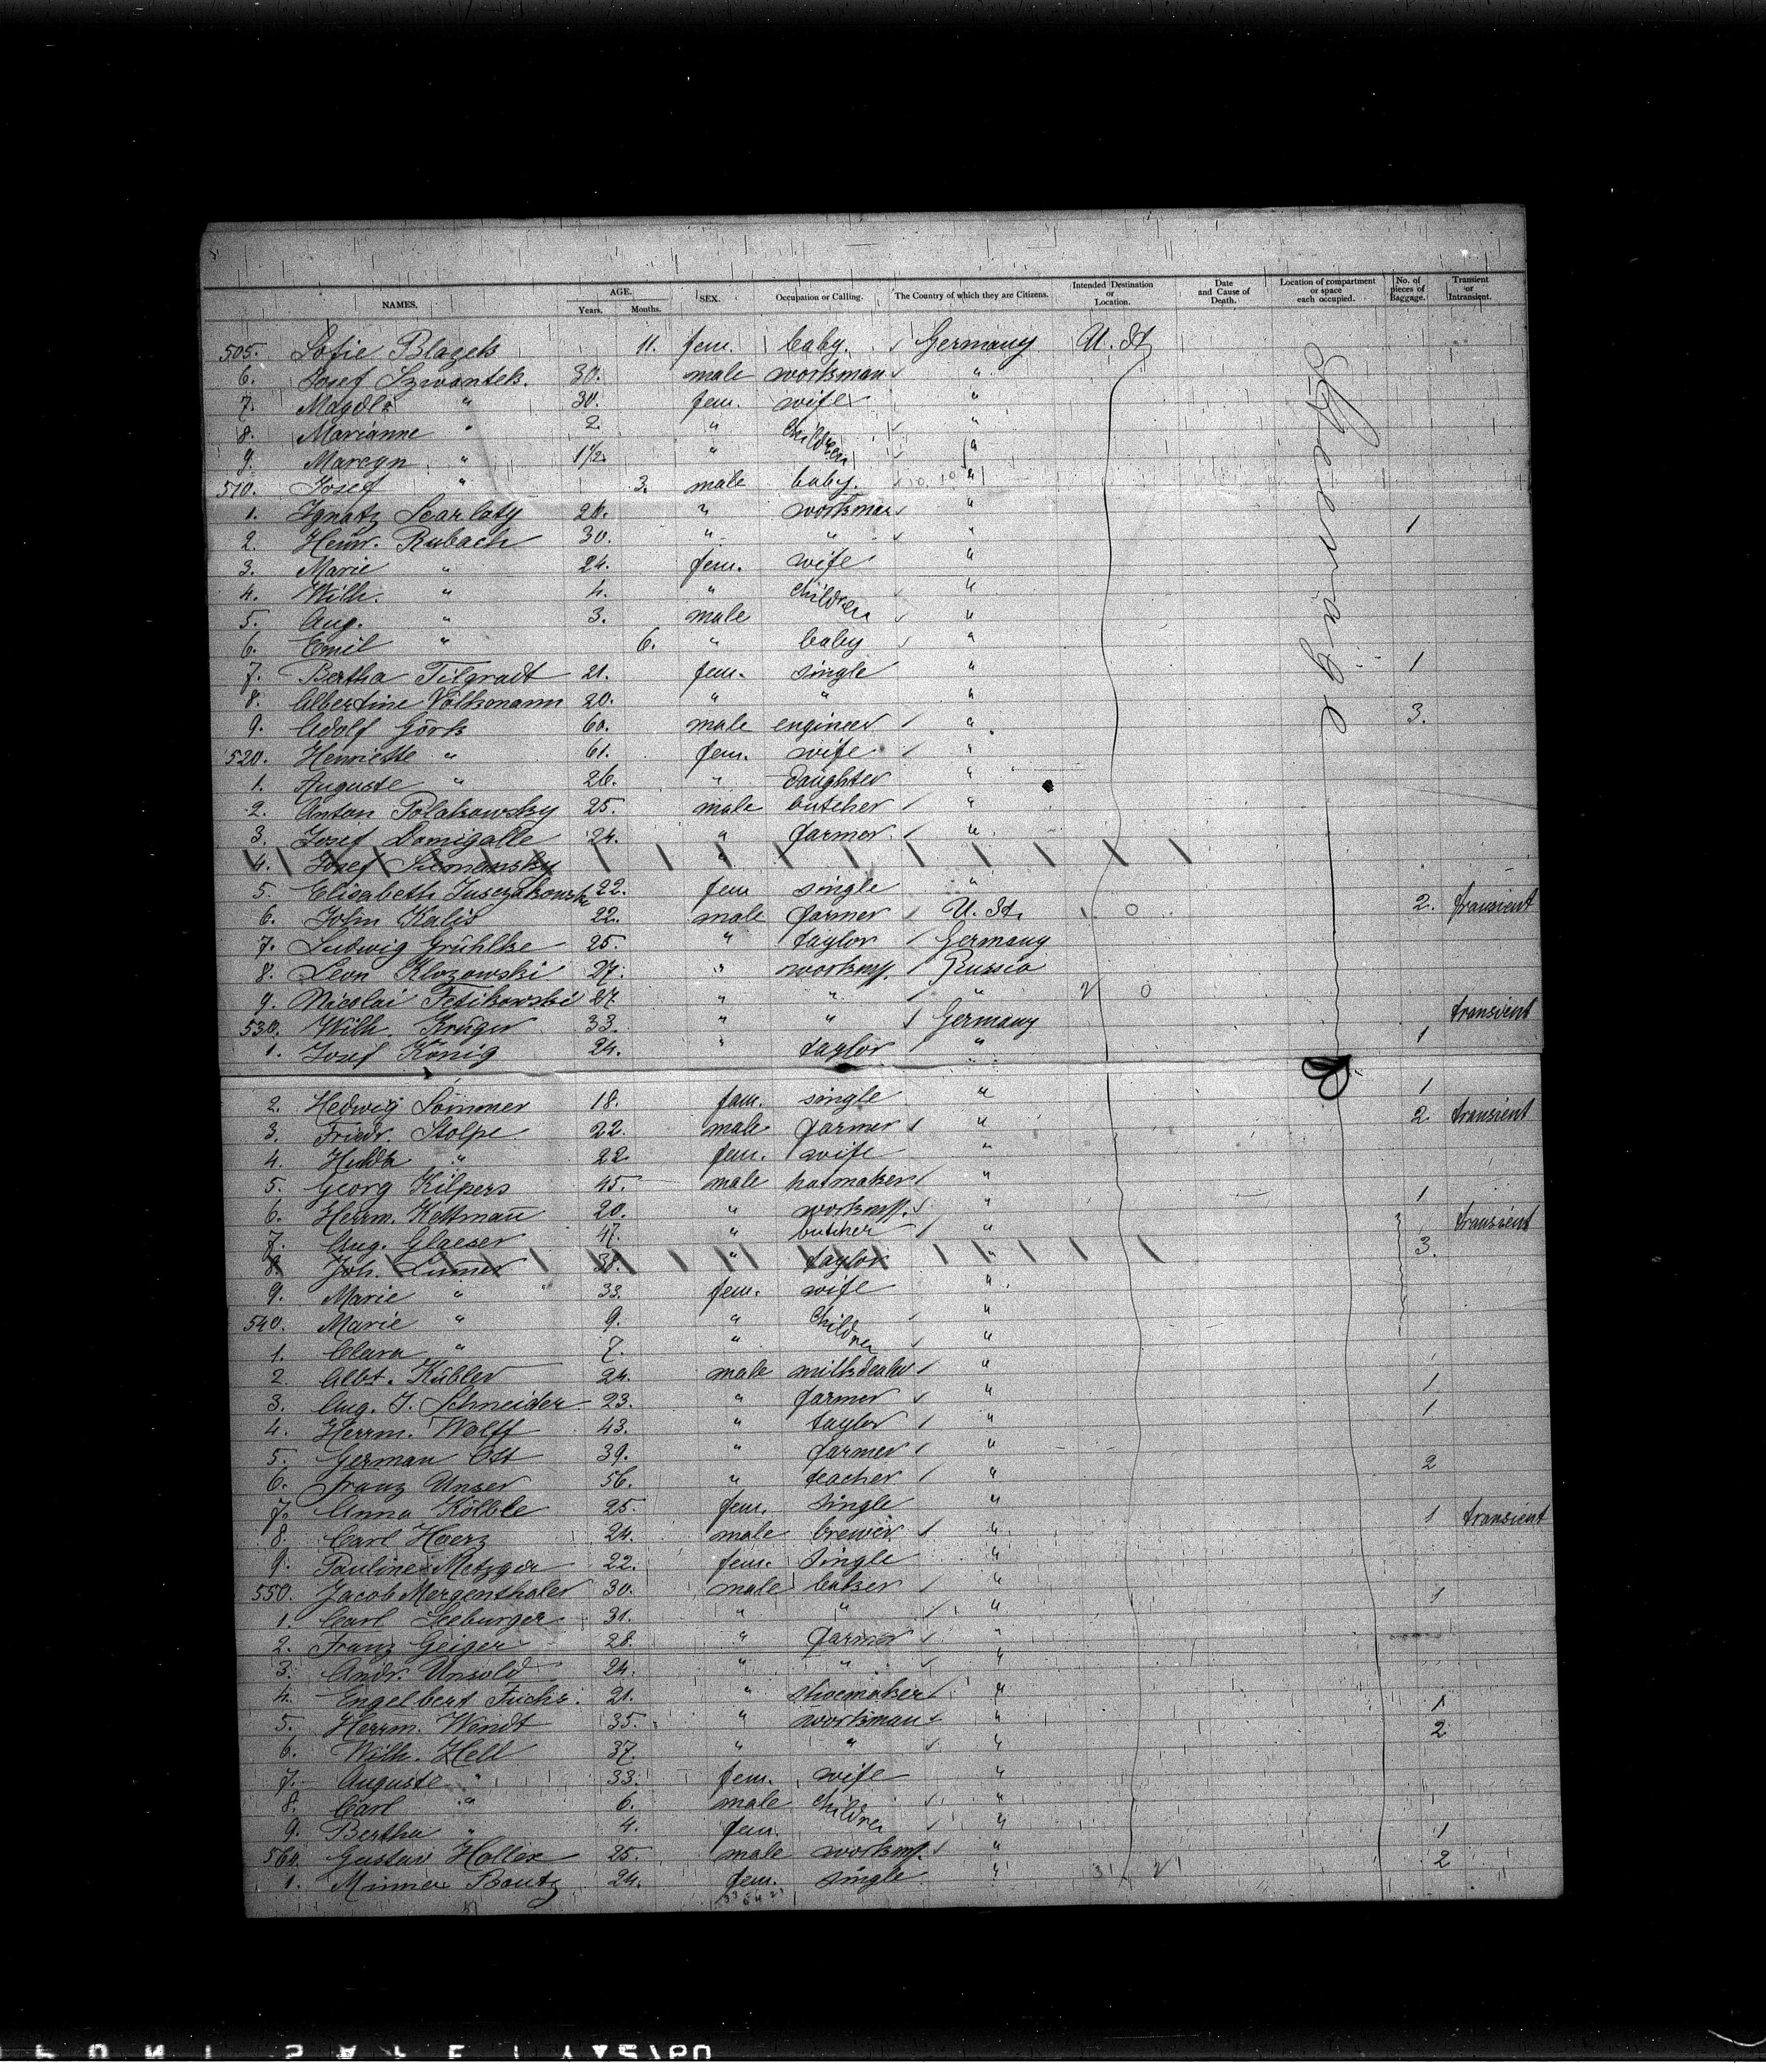 NAMES. AGE. Years. Months. SEX. Occupation or Calling. The Country of which they are Citizens. Intended Destination or Location. Date and Cause of Death. Location of compartment or space each occupied. No. of pieces of Baggage. Transient or Intransient.
505. Sofie Blazek 11. fem. baby. Germany U. St.
6. Josef Szwantek. 30. male workman "
7. Magda " 30. fem. wife "
8. Marianne " 2. " children "
9. Marcyn " 1 1/2. " "
510. Josef " 3. male baby. "
1. Ignatz Scarlaty 21. " workman "
2. Heinr. Rubach 30. " " " 1
3. Marie " 24. fem. wife "
4. Wilh. " 4. " children "
5. Aug. " 3. male "
6. Emil " 6. " baby "
7. Bertha Titgradt 21. fem. single " 1
8. Albertine Volkmann 20. " " "
9. Adolf Görk 60. male engineer " 3.
520. Henriette " 61. fem. wife "
1. Auguste " 26. " daughter "
2. Anton Polakowsky 25. male butcher "
3. Josef Domigalle 24. " farmer "
4. Josef "
5. Elisabeth 22. fem single "
6. John Kalis 22. male farmer U. St. 2. transient
7. Ludwig Gruhlke 25. " taylor Germany
8. Leon Klozowski 27. " workm. Russia
9. Nicolai Fesikowski 27 " " "
530. Wilh. Krüger 33. " " Germany transient
1. Josef König 24. " taylor " 1
2. Hedwig Sommer 18. fem. single " 1
3. Friedr. Stolpe 22. male farmer " 2. transient
4. Hulda " 22 fem. wife "
5. Georg Kilpers 45. male hatmaker "
6. Herrm. Kettman 20. " workm. " 1
7. Aug. Glaeser 47. " butcher " transient
8. Joh. 38. " taylor " 3.
9. Marie " 33. fem. wife "
540. Marie " 9. " children "
1. Clara " 7. " "
2 Albt. Kübler 24. male milkdealer "
3. Aug. J. Schneider 23. " farmer " 1
4. Herrm. Wolff 43. " taylor " 1
5. German Ost 39. " farmer "
6. Franz Unser 56. " teacher " 2
7. Anna Kölble 25. fem. single "
8. Carl Haerz 24. male brewer " 1 transient
9. Pauline Metzger 22. fem. single "
550. Jacob Mergenthaler 30. male baker "
1. Carl Seeburger 31. " " " 1
2. Franz Geiger 28. " farmer "
3. Andr. Unsold 24. " " "
4. Engelbert Fuchs. 21. " shoemaker "
5. Herrm. Wendt 35. " workman " 1
6. Wilh. Hell 37. " " " 2
7. Auguste " 33. fem. wife "
8. Carl " 6. male children "
9. Bertha " 4. fem. "
560. Gustav Holler 25. male workm. " 1
1. Minna Bautz 24. fem. single " 2